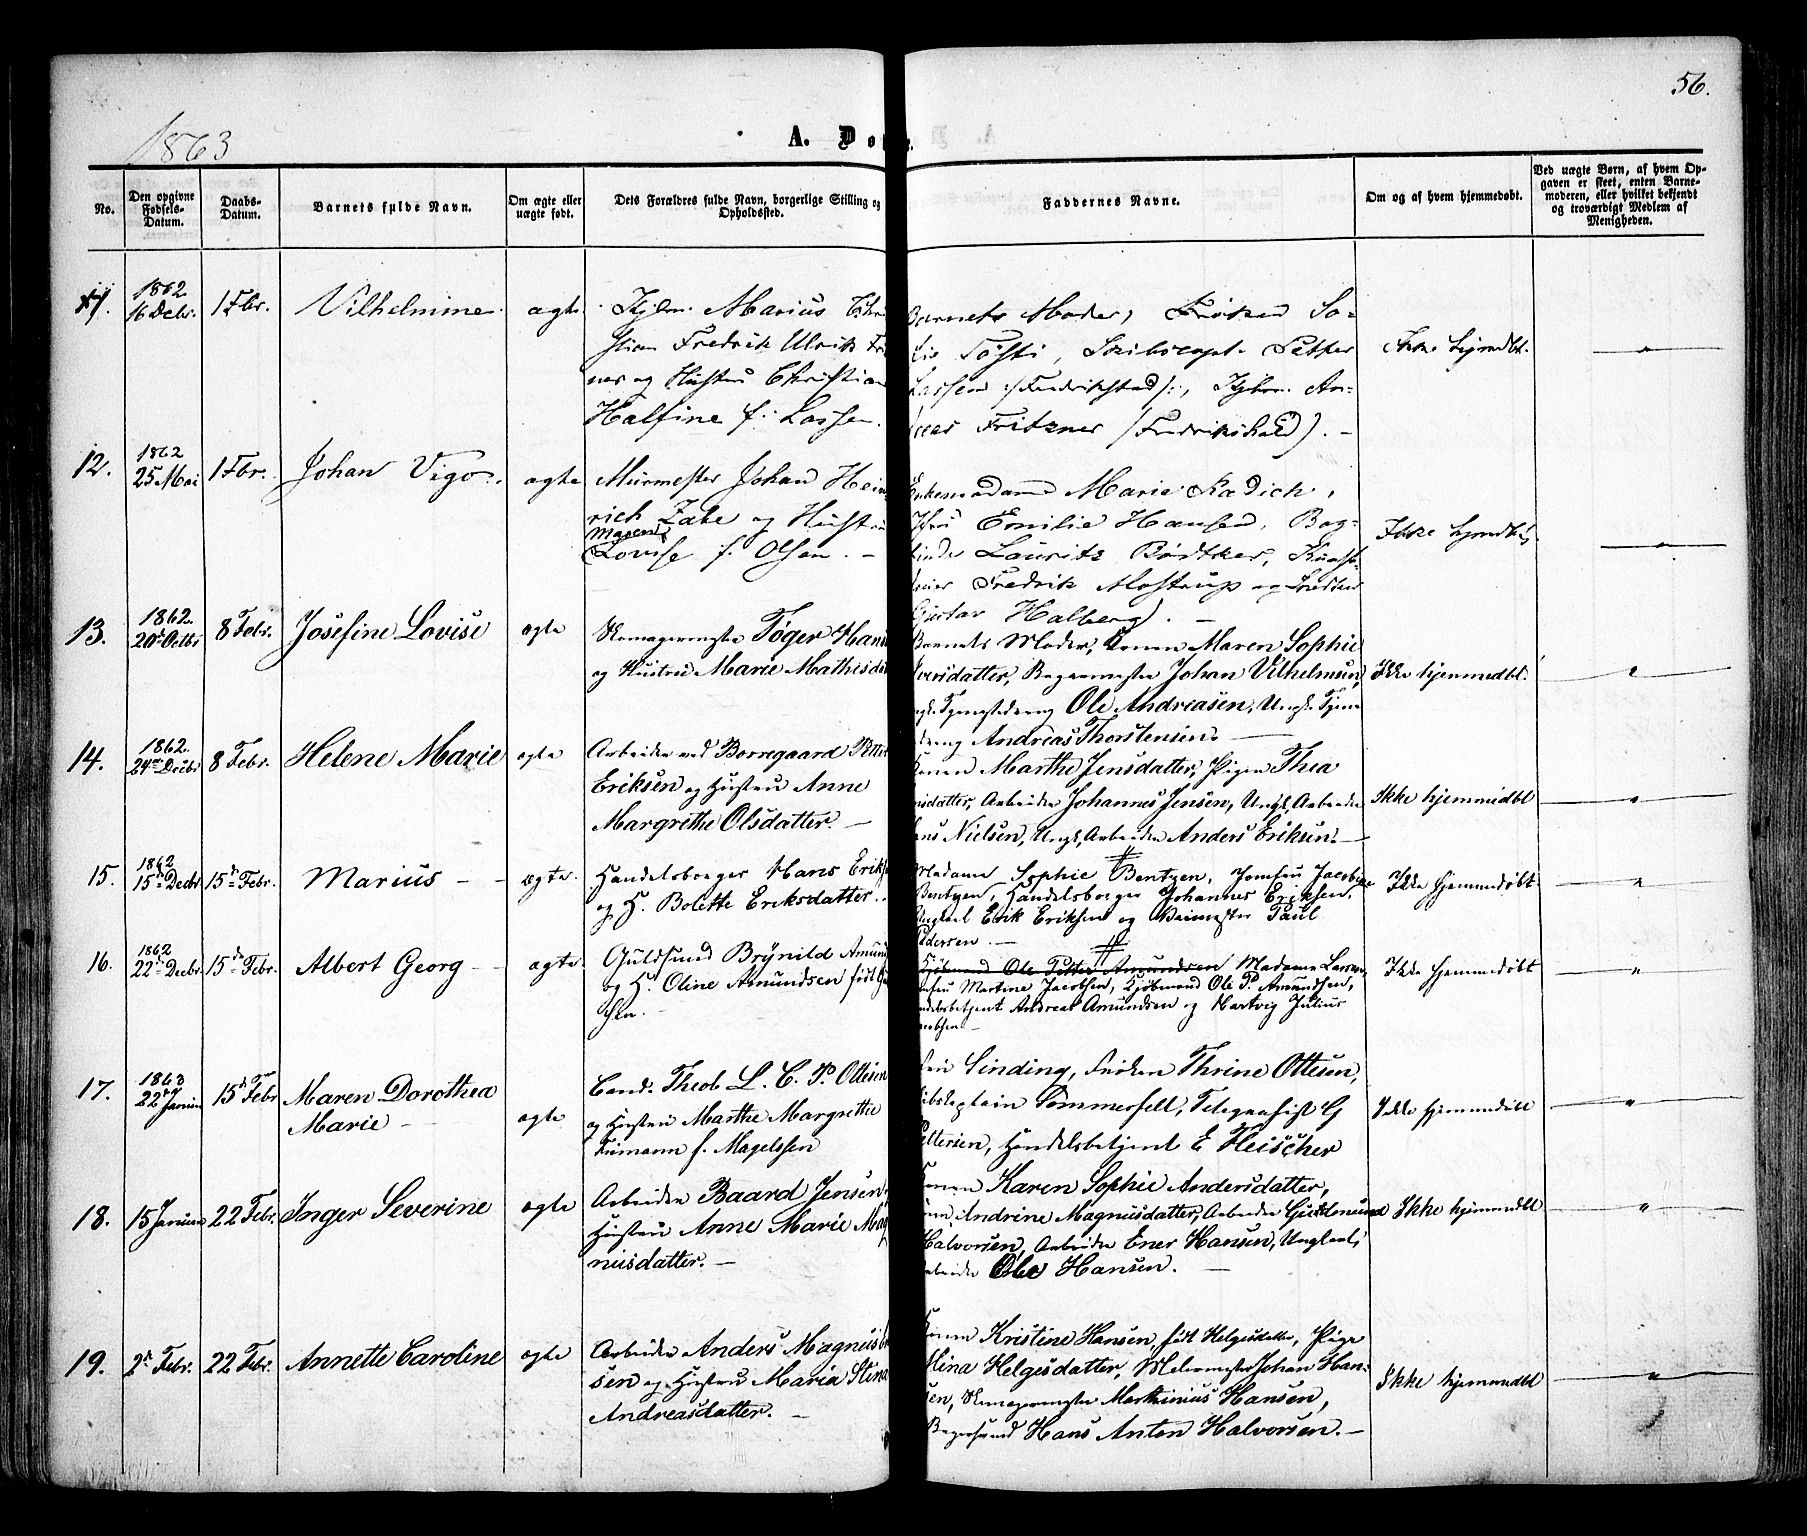 56.
1863
A. Dø
No.
Den opgivne Fødsels-Datum.
Daabs-Datum.
Barnets fulde Navn.
Om ægte eller uægte født.
Dets Forældres fulde Navn, borgerlige Stilling og Opholdssted.
Faddernes Navne.
Om og af hvem hjemmedøbt.
Ved uægte Børn, af hvem Opgaven er skeet, enten Barnemoderen, eller hvilket bekjendt og troværdigt Medlem af Menigheden.
11.
1862
16 Decbr.
1 Fbr.
Vilhelmine
ægte
Kjbm. Marius Chri
stian Fredrik Ulrik Fri
ner og Hustru Christiane
Halfine f. Lassen.
Barnets Moder, Frøken So-
fie Tofti, Skibscapt. Petter
Lassen /:Fredrikstad:/, Kjbm. An-
reas Fritzner /Fredrikshald/. —
Ikke hjmdbt.
12.
1862
25 Mai
1 Fbr.
Johan Vigo.
ægte
Murmester Johan Hein
rich Zabe og Hustru
Maren
Lovise f. Olsen. —
Enkemadame Marie Radich,
Emilie Hansen, Bog-
binder Lauritz Bødtker,
Fredrik Mostrup og
Gustav Halberg). —
Ikke hjmdbt.
13.
1862.
20de Octbr
8 Febr.
Josefine Lovise
ægte
Skomagermester Tøger Hans
og Hustru Marie Mathisda
Barnets Moder, Konen Maren Sophie
Iversdatter, Bagermester Johan Vilhelmsen,
Ungk. Tjenestedreng Ole Andreasen, Ungk. Tjene
dreng Andreas Thorstensen. —
Ikke hjemmedbt.
14.
1862.
24de Decbr
8 Febr.
Helene Marie
ægte
Arbeider ved Borregaard Petter
Eriksen og Hustru Anne
Margrethe Olsdatter. —
Konen Marthe Jensdatter, Pigen Thea
nsdatter, Arbeider Johannes Jensen, Ungk. Arbeider
ns Nielsen, Ungk. Arbeider Anders Eriksen. —
Ikke hjemmedbt
15.
1862
15de Decbr
15de Febr.
Marius — —
ægte.
Handelsborger Hans Eriks
og H. Bolette Eriksdatter.
Madame Sophie Bentzen, Jomfru Jacobine
Bentzen, Handelsborger Johannes Eriksen,
Ungkarl Erik Eriksen og Skimester Paul
Pedersen. —
Ikke hjemmedøbt.
16.
1862
22de Decbr.
15de Febr.
Albert Georg —
ægte.
Guldsmed Brynild Amund
og H. Oline Amundsen født
sen. —
Kjøbmand Ole Petter Amundsen Madame Larsen,
Jomfru Martine Jacobsen, Kjøbmand Ole P. Amundsen,
Handelsbetjent Andreas Amundsen og Hartvig Julius
Jacobsen —
Ikke hjemmedøbt
17.
1863
22de Januar
15de Febr
Maren Dorothea
Marie —
ægte
Cand. Theol L. C. P. Ottesen
og Hustru Marthe Margrethe
Tiemann f. Magelssen
Sinding, Frøken Thrine Ottesen,
Skibskaptein Sommerfelt, Telegrafist G
Pettersen, Handelsbetjent E Fleischer
Ikke hjemmedøbt
18.
15 Januar
22 Febr.
Inger Severine
ægte
Arbeider Baard Jensen,
Hustru Anne Marie Mag
nusdatter. —
Konen Karen Sophie Andersdatter,
Andrine Magnusdatter, Arbeider Gudmund
Halvorsen, Arbeider Ener Hansen, Ungkarl,
Arbeider Ole Hansen. —
Ikke hjemmedbt
19.
2de Febr.
22 Febr.
Annette Caroline
ægte
Arbeider Anders Magnus
sen og Hustru Maria Stina
Andreasdatter. —
Konen Kristine Hansen, født Helgesdatter, Pige
Mina Helgesdatter, Malermester Johan Han-
sen, Skomagermester Marthinius Hansen,
Bagersvend Hans Anton Halvorsen. —
Ikke hjemmedbt